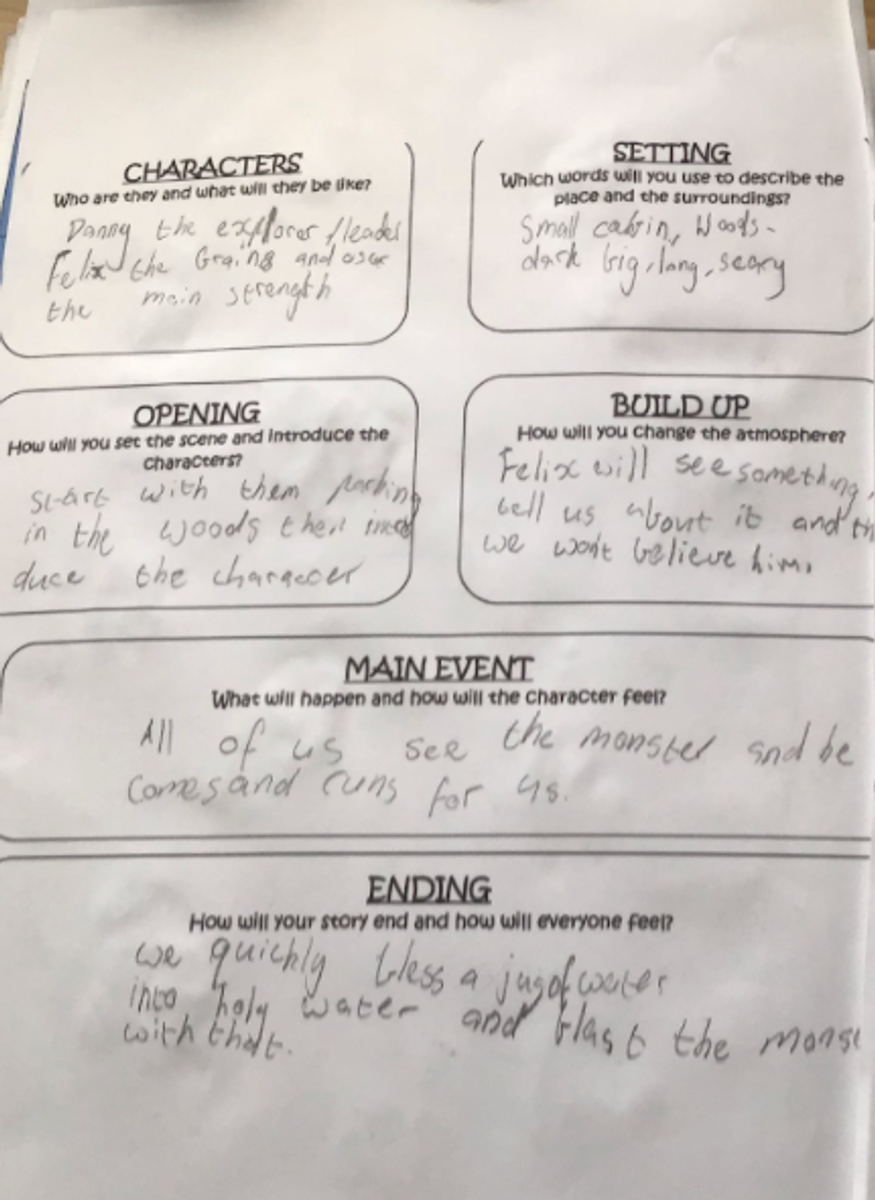 CHARACTERS
Who are they and what will they be like?
Danny the explorer/leader
Felix the Brains and oscar
the main strength
SETTING
Which words will you use to describe the
place and the surroundings?
Small cabin, Woods-
dark big, long, scary
OPENING
How will you set the scene and introduce the
characters?
Start with them parking
in the woods then intro
duce the character
BUILD UP
How will you change the atmosphere?
Felix will see something,
tell us about it and th
we won't believe him.
MAIN EVENT
What will happen and how will the character feel?
All of us see the monster and he
comes and runs for us.
ENDING
How will your story end and how will everyone feel?
we quickly bless a jug of water
into holy water and blast the mons
with that.